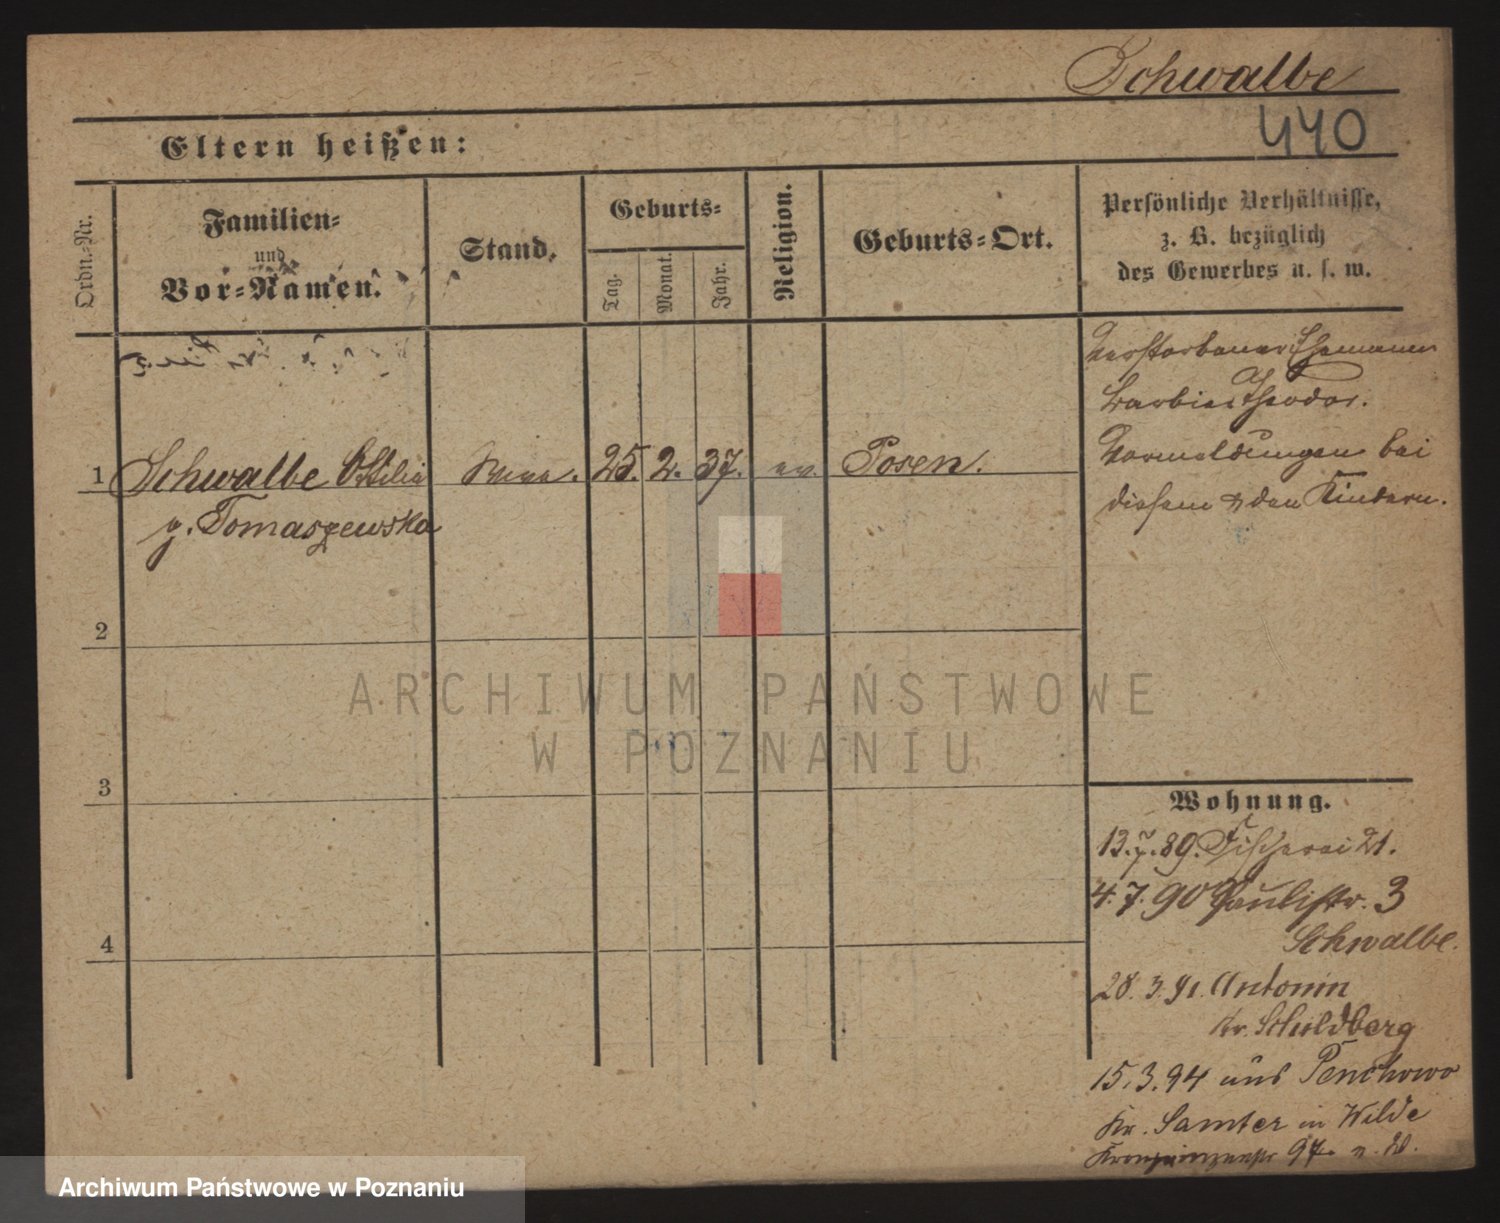 Schwalbe
440
Eltern heißen:
Ordn.-Nr.
Familien-
und
Vor-Namen.
Stand.
Geburts-
Tag.
Monat.
Jahr.
Religion.
Geburts-Ort.
Persönliche Verhältnisse,
z. B. bezüglich
des Gewerbes u. s. w.
1 Schwalbe Ottilie Wwe. 25. 2. 37. ev. Posen.
g. Tomaszewska
Verstorbener Ehemann
Barbier Theodor.
Vormeldungen bei
diesem & den Kindern.
2
3
4
Wohnung.
13.7.89. Fischerei 21.
4.7.90 Paulistr. 3
Schwalbe.
28.3.91. Antonin
Kr. Schildberg
15.3.94 aus
Kr. Samter in Wilda
Kronprinzenstr 97
ARCHIWUM PAŃSTWOWE
W POZNANIU
Archiwum Państwowe w Poznaniu